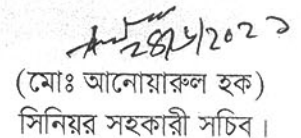 28/6/2021
(মোঃ আনোয়ারুল হক)
সিনিয়র সহকারী সচিব।